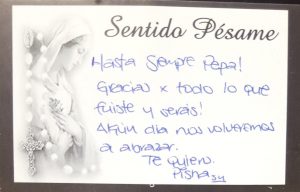 Sentido Pésame
Hasta Siempre Pepa!
Gracias x todo lo que
fuiste y serás!
Algún día nos volveremos
a abrazar.
Te quiero.